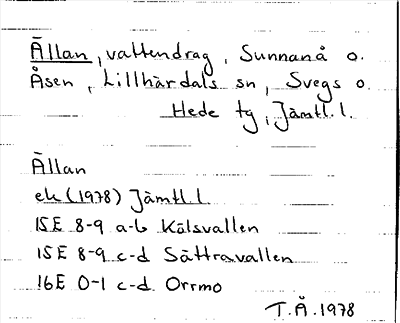 Ällan, vattendrag, Sunnanå o.
Åsen, Lillhärdals sn, Svegs o.
Hede tg, Jämtl.l.
Ällan
ek (1978) Jämtl.l.
15E 8-9 a-b Kälsvallen
15E 8-9 c-d Sättravallen
16E 0-1 c-d Orrmo
T.Å.1978